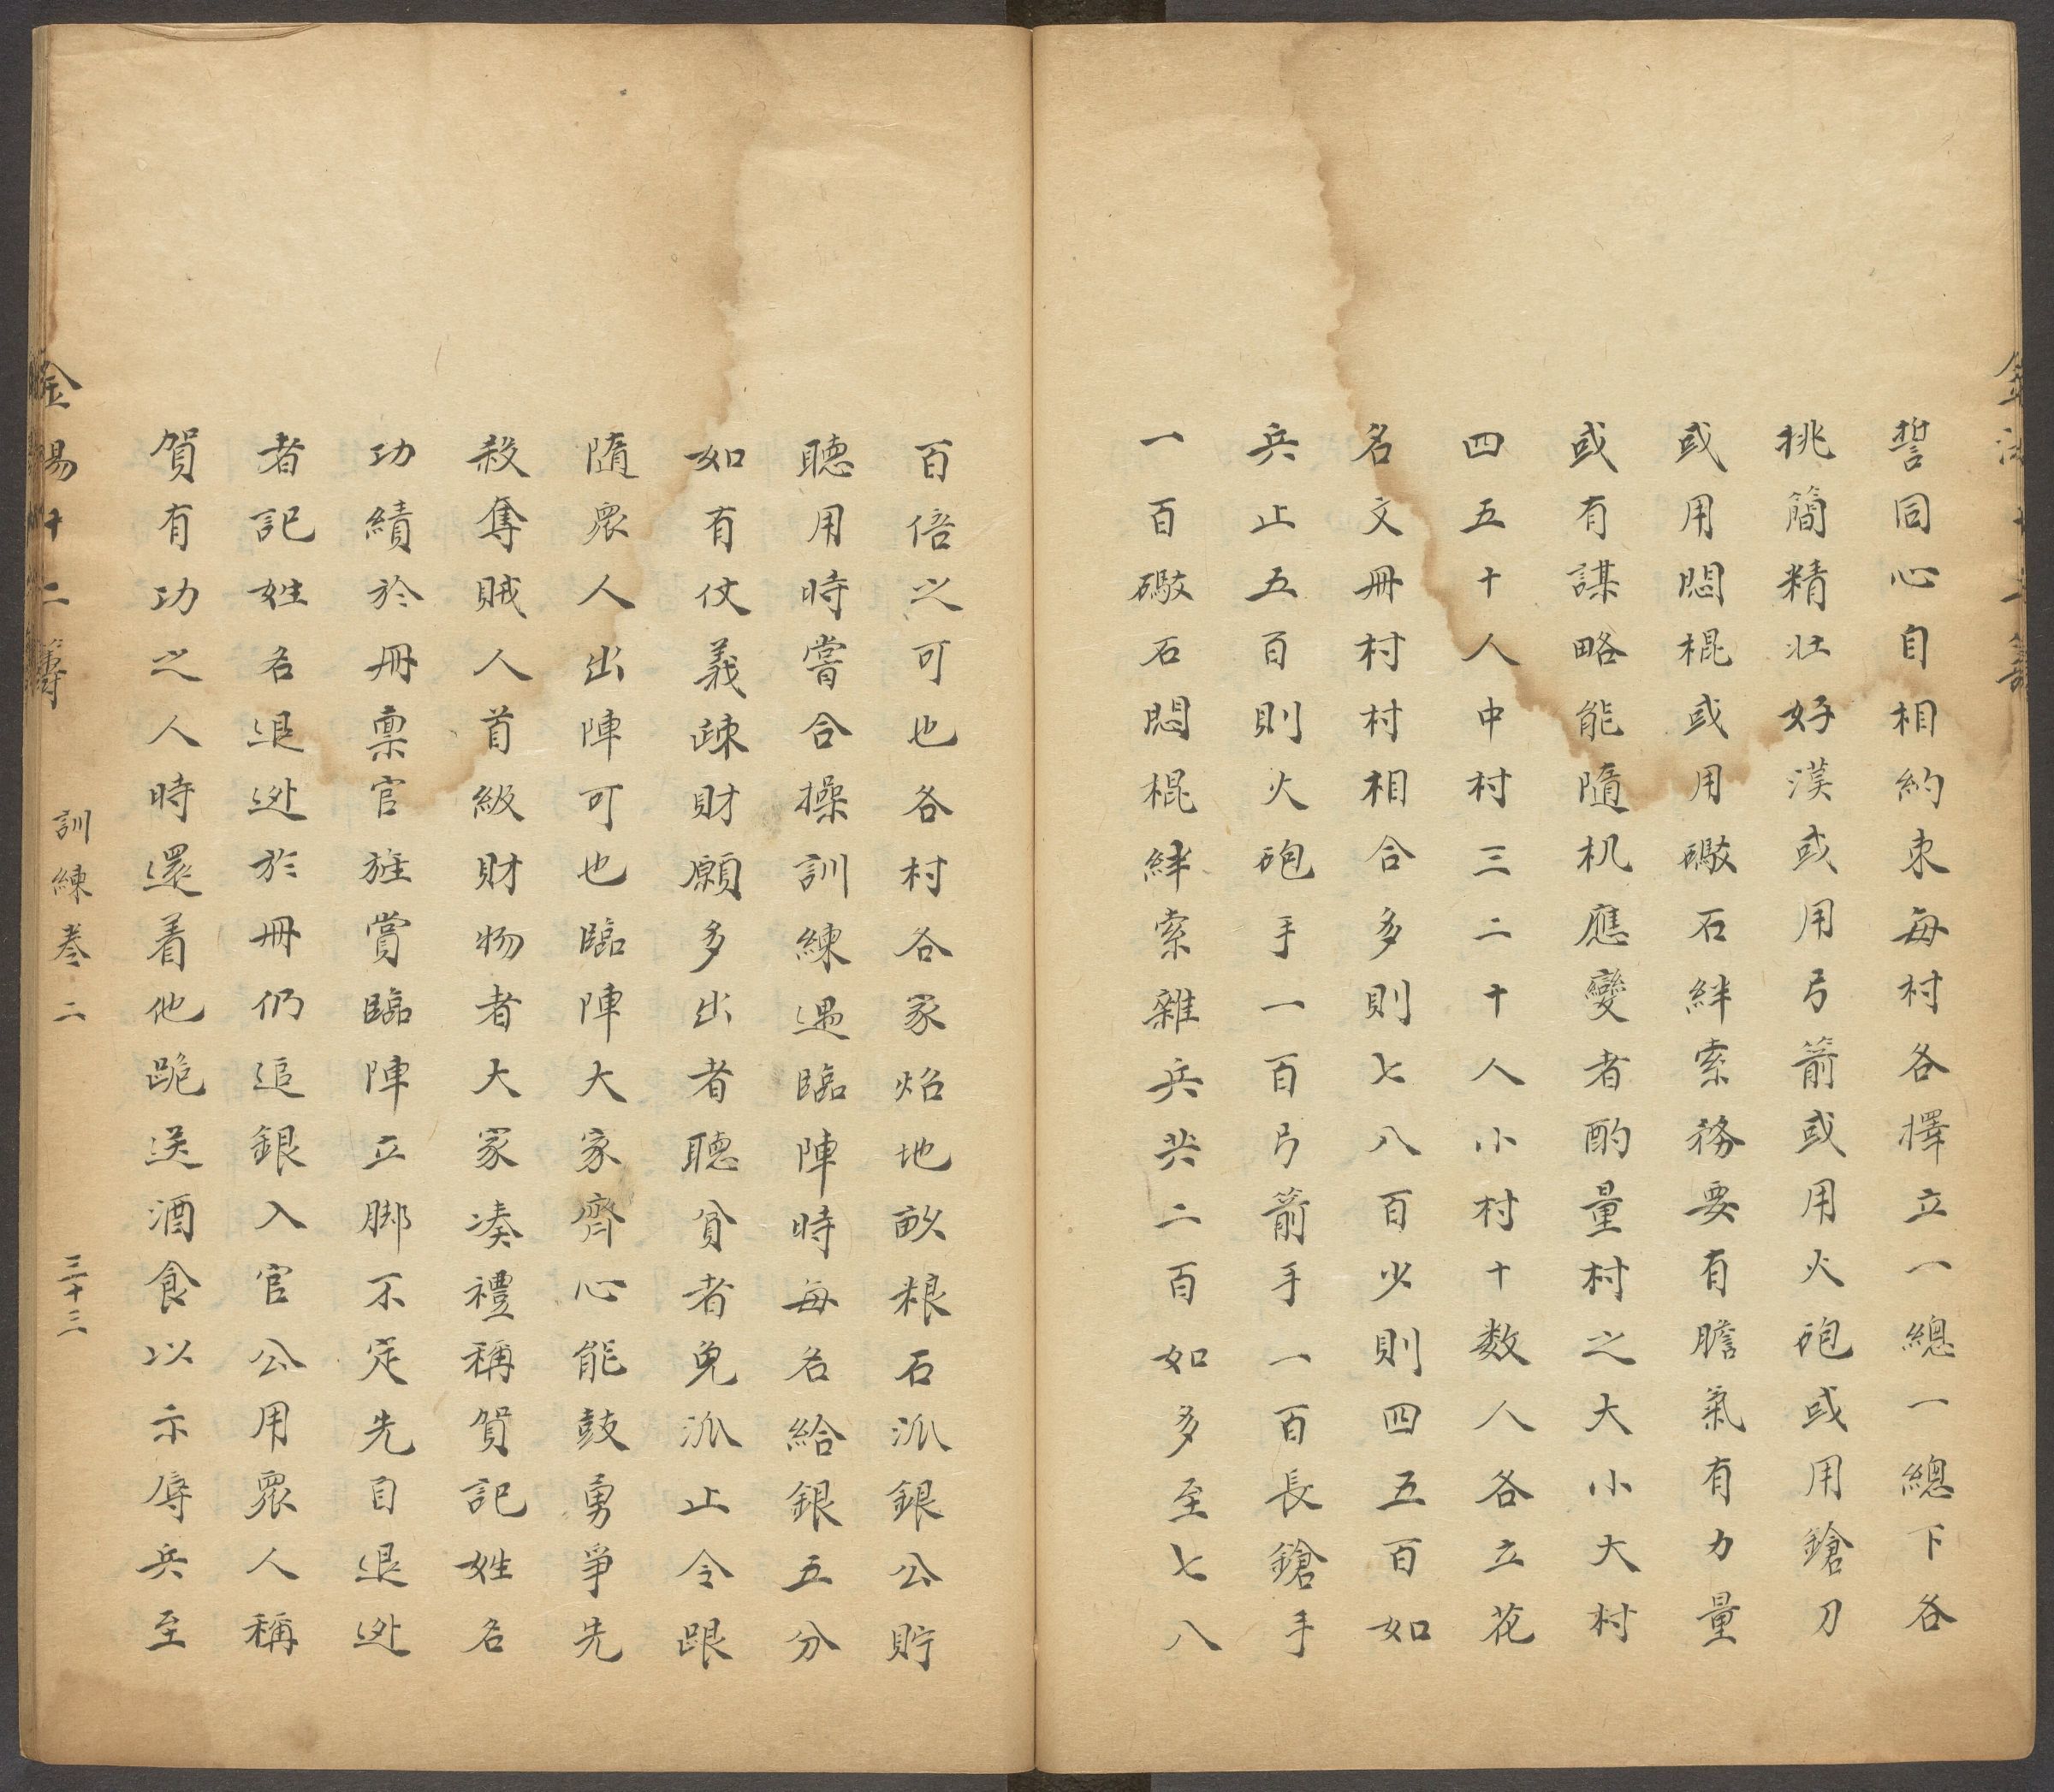 誓同心自相約束每村各擇立一總一總下各
挑簡精壯好漢或用弓箭或用火砲或用鎗刀
或用悶棍或用礮石絆索務要有膽氣有力量
或有謀略能隨机應變者酌量村之大小大村
四五十人中村三二十人小村十数人各立花
名文冊村村相合多則七八百少則四五百如
兵止五百則火砲手一百弓箭手一百長鎗手
一百礮石悶棍絆索雜兵共二百如多至七八
百倍之可也各村各家炤地畝粮石派銀公貯
聽用時嘗合操訓練遇臨陣時每名給銀五分
如有仗義疎財願多出者聽貧者免派止令跟
隨眾人出陣可也臨陣大家齊心能鼓勇爭先
殺奪賊人首級財物者大家凑禮稱賀記姓名
功績於冊禀官旌賞臨陣立脚不定先自退迯
者記姓名退迯於冊仍追銀入官公用眾人稱
賀有功之人時還着他跪送酒食以示辱兵至
金湯十二籌
訓練卷二
三十三